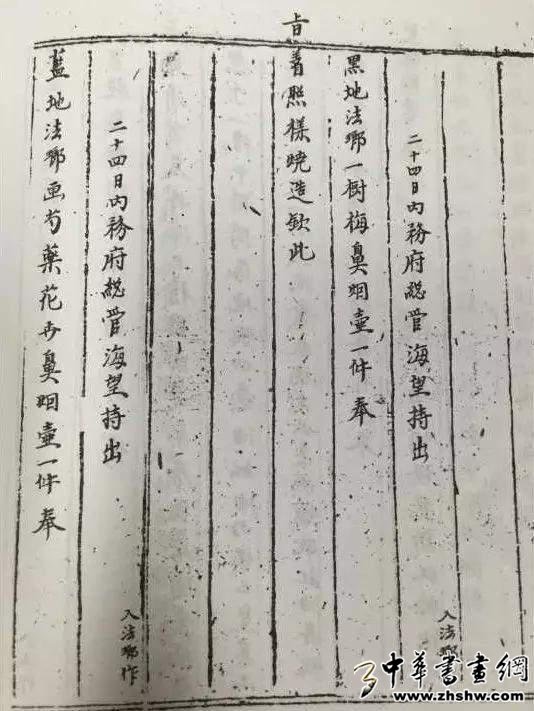 入法瑯作
二十四日內務府總管海望持出
黑地法瑯一樹梅鼻烟壺一件奉
旨着照樣燒造欽此
入法瑯作
二十四日內務府總管海望持出
藍地法瑯画芍藥花卉鼻烟壺一件奉
中華書畫網
www.zhshw.com